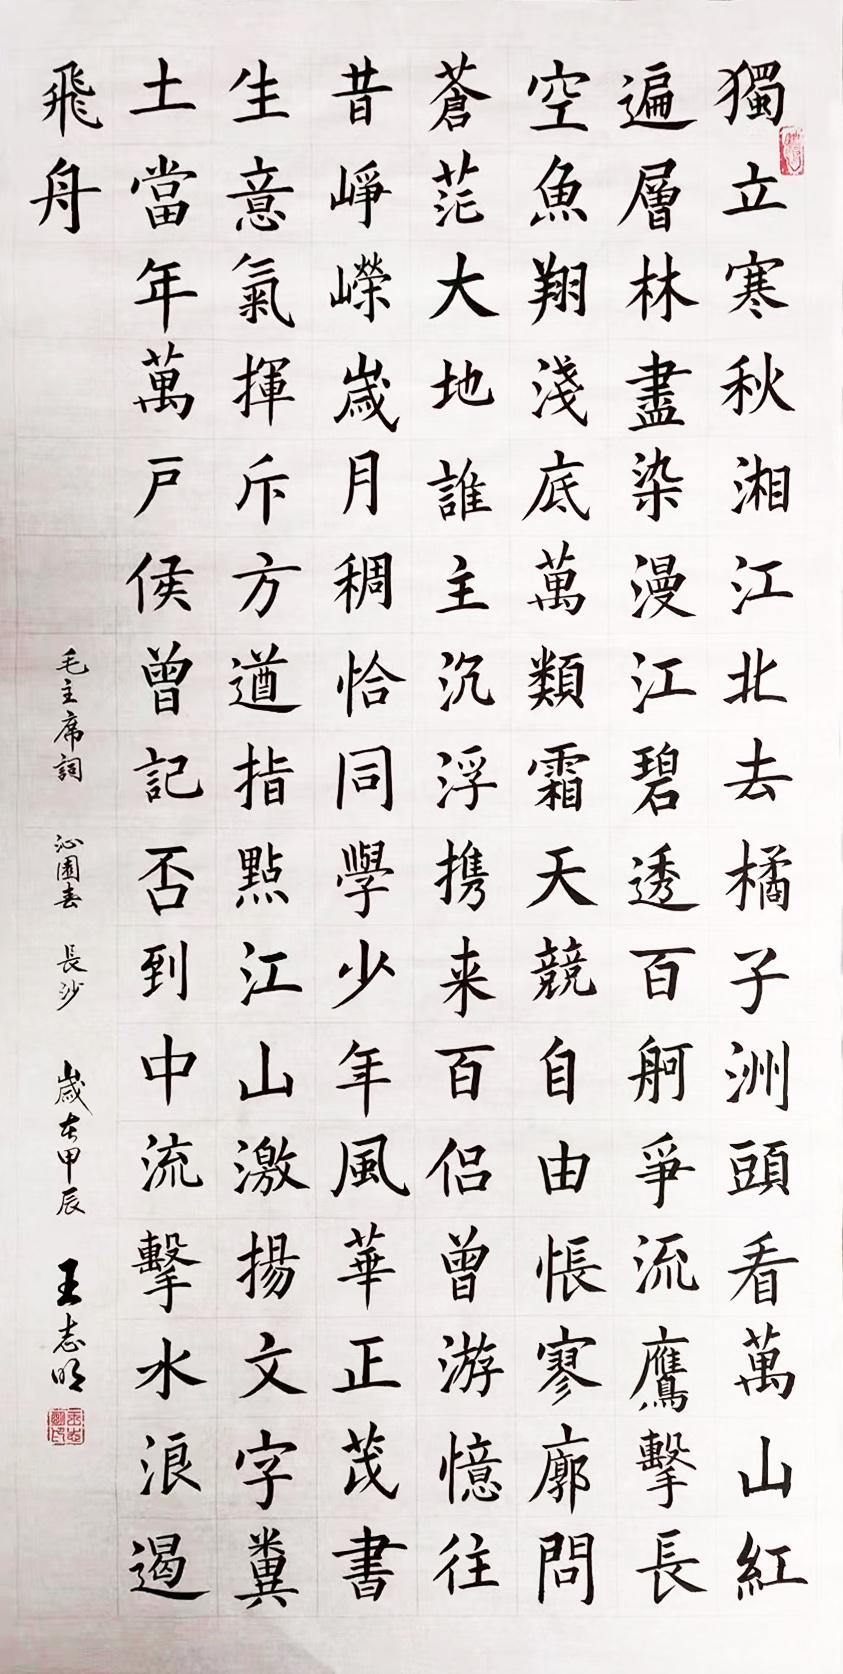 獨立寒秋湘江北去橘子洲頭看萬山紅
遍層林盡染漫江碧透百舸爭流鷹擊長
空魚翔淺底萬類霜天競自由悵寥廓問
蒼茫大地誰主沉浮携来百侣曾游憶往
昔崢嶸歲月稠恰同學少年風華正茂書
生意氣揮斥方遒指點江山激揚文字糞
土當年萬戶侯曾記否到中流擊水浪遏
飛舟
毛主席詞 沁園春 長沙 歲在甲辰 王志明